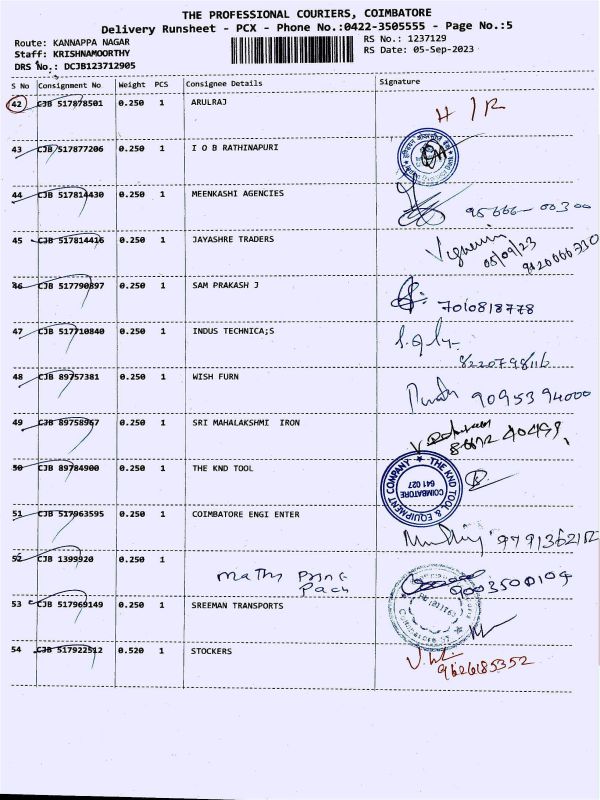 THE PROFESSIONAL COURIERS, COIMBATORE
Delivery Runsheet - PCX - Phone No.:0422-3505555 - Page No.:5
Route: KANNAPPA NAGAR
RS No.: 1237129
Staff: KRISHNAMOORTHY
RS Date: 05-Sep-2023
DRS No.: DCJB123712905
S No Consignment No Weight PCS Consignee Details Signature
42 CJB 517878501 0.250 1 ARULRAJ
H/R
43 CJB 517877206 0.250 1 I O B RATHINAPURI
44 CJB 517814430 0.250 1 MEENKASHI AGENCIES
95666-00300
45 CJB 517814416 0.250 1 JAYASHRE TRADERS
05/09/23
46 CJB 517790897 0.250 1 SAM PRAKASH J
7010818778
47 CJB 517710840 0.250 1 INDUS TECHNICA;S
8220798116
48 CJB 89757381 0.250 1 WISH FURN
9095394000
49 CJB 89758967 0.250 1 SRI MAHALAKSHMI IRON
50 CJB 89784900 0.250 1 THE KND TOOL
THE KND TOOL & EQUIPMENT COMPANY
COIMBATORE
641 027
51 CJB 517963595 0.250 1 COIMBATORE ENGI ENTER
9791362152
52 CJB 1399920 0.250 1
9003500109
53 CJB 517969149 0.250 1 SREEMAN TRANSPORTS
54 CJB 517922512 0.520 1 STOCKERS
9626185352